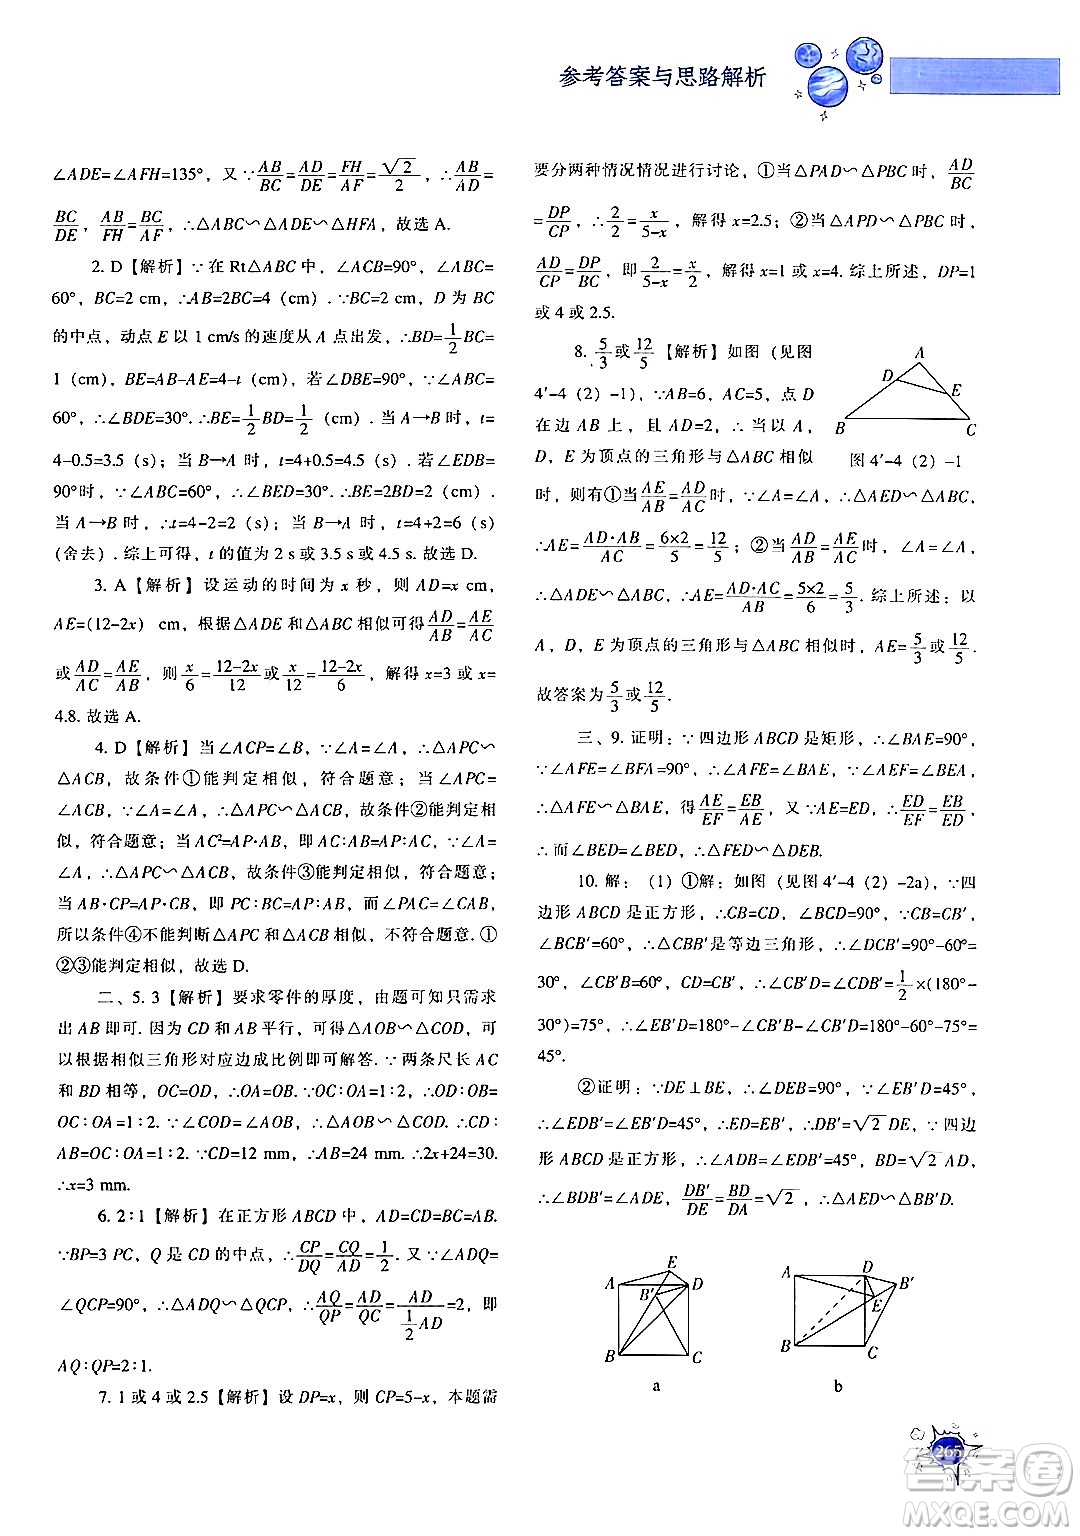 参考答案与思路解析
∠ADE=∠AFH=135°，又∵AB/BC=AD/DE=FH/AF=√2/2，∴AB/AD=
BC/DE，AB/FH=BC/AF，∴△ABC∽△ADE∽△HFA，故选 A.
2. D【解析】∵在 Rt△ABC 中，∠ACB=90°，∠ABC=
60°，BC=2 cm，∴AB=2BC=4（cm）. ∵BC=2 cm，D 为 BC
的中点，动点 E 以 1 cm/s 的速度从 A 点出发，∴BD=1/2BC=
1（cm），BE=AB-AE=4-t（cm），若∠DBE=90°，∵∠ABC=
60°，∴∠BDE=30°. ∴BE=1/2BD=1/2（cm）. 当 A→B 时，t=
4-0.5=3.5（s）；当 B→A 时，t=4+0.5=4.5（s）. 若∠EDB=
90°时，∵∠ABC=60°，∴∠BED=30°. ∴BE=2BD=2（cm）.
当 A→B 时，∴t=4-2=2（s）；当 B→A 时，t=4+2=6（s）
(舍去）. 综上可得，t 的值为 2 s 或 3.5 s 或 4.5 s. 故选 D.
3. A【解析】设运动的时间为 x 秒，则 AD=x cm，
AE=(12-2x) cm，根据△ADE 和△ABC 相似可得AD/AB=AE/AC
或AD/AC=AE/AB，则x/6=12-2x/12或x/12=12-2x/6，解得 x=3 或 x=
4.8. 故选 A.
4. D【解析】当∠ACP=∠B，∵∠A=∠A，∴△APC∽
△ACB，故条件①能判定相似，符合题意；当∠APC=
∠ACB，∵∠A=∠A，∴△APC∽△ACB，故条件②能判定相
似，符合题意；当 AC²=AP·AB，即 AC∶AB=AP∶AC. ∵∠A=
∠A，∴△APC∽△ACB，故条件③能判定相似，符合题意；
当 AB·CP=AP·CB，即 PC∶BC=AP∶AB，而∠PAC=∠CAB，
所以条件④不能判断△APC 和△ACB 相似，不符合题意. ①
②③能判定相似，故选 D.
二、5. 3【解析】要求零件的厚度，由题可知只需求
出 AB 即可. 因为 CD 和 AB 平行，可得△AOB∽△COD，可
以根据相似三角形对应边成比例即可解答. ∵两条尺长 AC
和 BD 相等，OC=OD，∴OA=OB. ∵OC∶OA=1∶2，∴OD∶OB=
OC∶OA=1∶2. ∵∠COD=∠AOB，∴△AOB∽△COD. ∴CD∶
AB=OC∶OA=1∶2. ∵CD=12 mm，∴AB=24 mm. ∴2x+24=30.
∴x=3 mm.
6. 2∶1【解析】在正方形 ABCD 中，AD=CD=BC=AB.
∵BP=3 PC，Q 是 CD 的中点，∴CP/DQ=CQ/AD=1/2. 又∵∠ADQ=
∠QCP=90°，∴△ADQ∽△QCP，∴AQ/QP=AD/QC=AD/(1/2 AD)=2，即
AQ∶QP=2∶1.
7. 1 或 4 或 2.5【解析】设 DP=x，则 CP=5-x，本题需
要分两种情况情况进行讨论，①当△PAD∽△PBC 时，AD/BC
=DP/CP，∴2/2=x/5-x，解得 x=2.5；②当△APD∽△PBC 时，
AD/CP=DP/BC，即2/5-x=x/2，解得 x=1 或 x=4. 综上所述，DP=1
或 4 或 2.5.
8. 5/3或12/5【解析】如图（见图
4′-4（2）-1），∵AB=6，AC=5，点 D
在边 AB 上，且 AD=2，∴当以 A，
D，E 为顶点的三角形与△ABC 相似
时，则有①当AE/AB=AD/AC时，∵∠A=∠A，∴△AED∽△ABC，
∴AE=AD·AB/AC=6×2/5=12/5；②当AD/AB=AE/AC时，∠A=∠A，
∴△ADE∽△ABC，∴AE=AD·AC/AB=5×2/6=5/3. 综上所述：以
A，D，E 为顶点的三角形与△ABC 相似时，AE=5/3或12/5.
故答案为5/3或12/5.
A
D
E
B
C
图 4′-4（2）-1
三、9. 证明：∵四边形 ABCD 是矩形，∴∠BAE=90°.
∵∠AFE=∠BFA=90°，∴∠AFE=∠BAE，∵∠AEF=∠BEA，
∴△AFE∽△BAE，得AE/EF=EB/AE，又∵AE=ED，∴ED/EF=EB/ED，
∴而∠BED=∠BED，∴△FED∽△DEB.
10. 解：（1）①解：如图（见图 4′-4（2）-2a），∵四
边形 ABCD 是正方形，∴CB=CD，∠BCD=90°，∵CB=CB′，
∠BCB′=60°，∴△CBB′是等边三角形，∴∠DCB′=90°-60°=
30°，∠CB′B=60°，∵CD=CB′，∴∠CB′D=∠CDB′=1/2×(180°-
30°)=75°，∴∠EB′D=180°-∠CB′B-∠CB′D=180°-60°-75°=
45°.
②证明：∵DE⊥BE，∴∠DEB=90°，∵∠EB′D=45°，
∴∠EDB′=∠EB′D=45°，∴DE=EB′，∴DB′=√2 DE，∵四边
形 ABCD 是正方形，∴∠ADB=∠BAD=45°，BD=√2 AD，
∴∠BDB′=∠ADE，DB′/DE=BD/DA=√2，∴△AED∽△BB′D.
A
E
D
B′
B
C
a
A
D
B′
E
B
C
b
265
答案圈
MXQE.COM